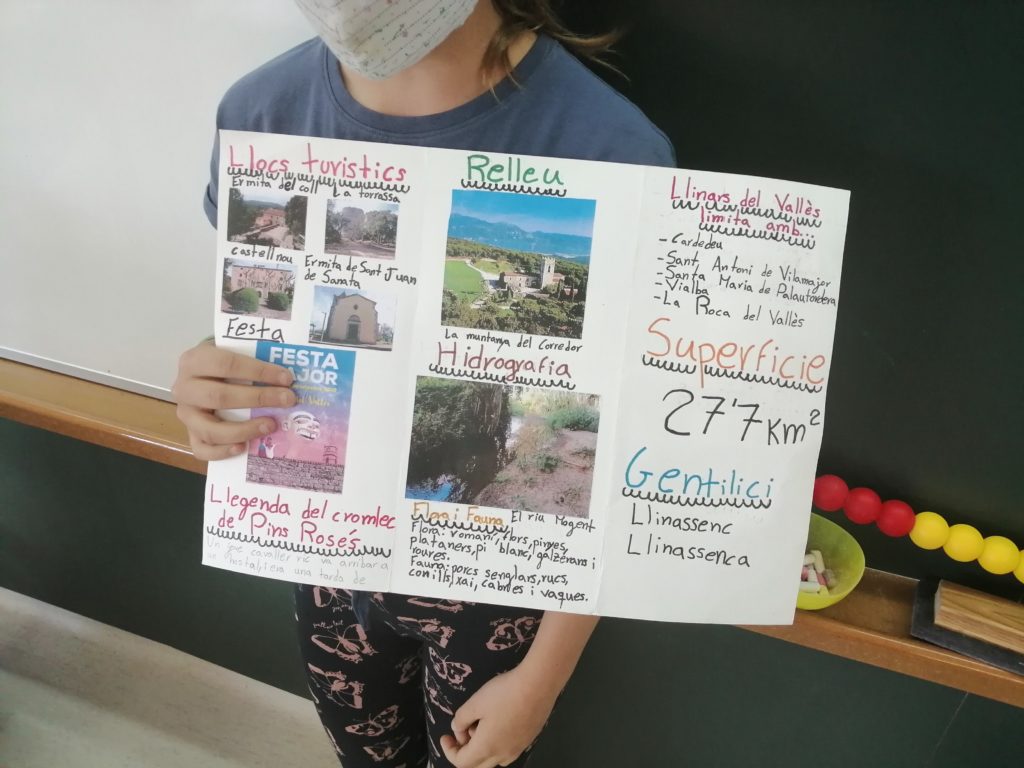 Llocs turístics
Ermita del coll
La torrassa
castell nou
Ermita de Sant Juan
de Sanata
Festa
FESTA
MAJOR
Llegenda del cromlec
de Pins Rosés
Un jove cavaller ric va arribar a
un hostal, i era una tarda de
Relleu
La muntanya del Corredor
Hidrografia
El riu Mogent
Flora i Fauna
Flora: romaní, flors, pinyes,
plataners, pi blanc, galzerans i
roures.
Fauna: porcs senglars, rucs,
conills, xai, cabres i vaques.
Llinars del Vallès
limita amb...
- Cardedeu
- Sant Antoni de Vilamajor
- Santa Maria de Palautordera
- Vialba
- La Roca del Vallès
Superfície
27'7 km²
Gentilici
Llinassenc
Llinassenca